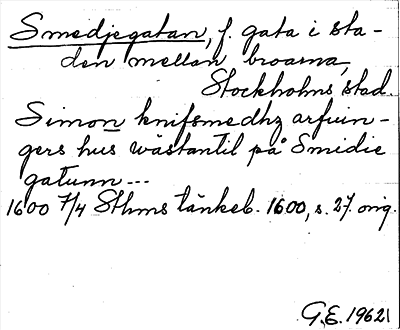 Smedjegatan, f. gata i sta-
den mellan broarna,
Stockholms stad.
Simon knifsmedhz arfuin-
gers hus wästantil på Smidie
gatunn---
1600 7/4 Sthms tänkeb. 1600, s. 27. orig.
G.E. 1962